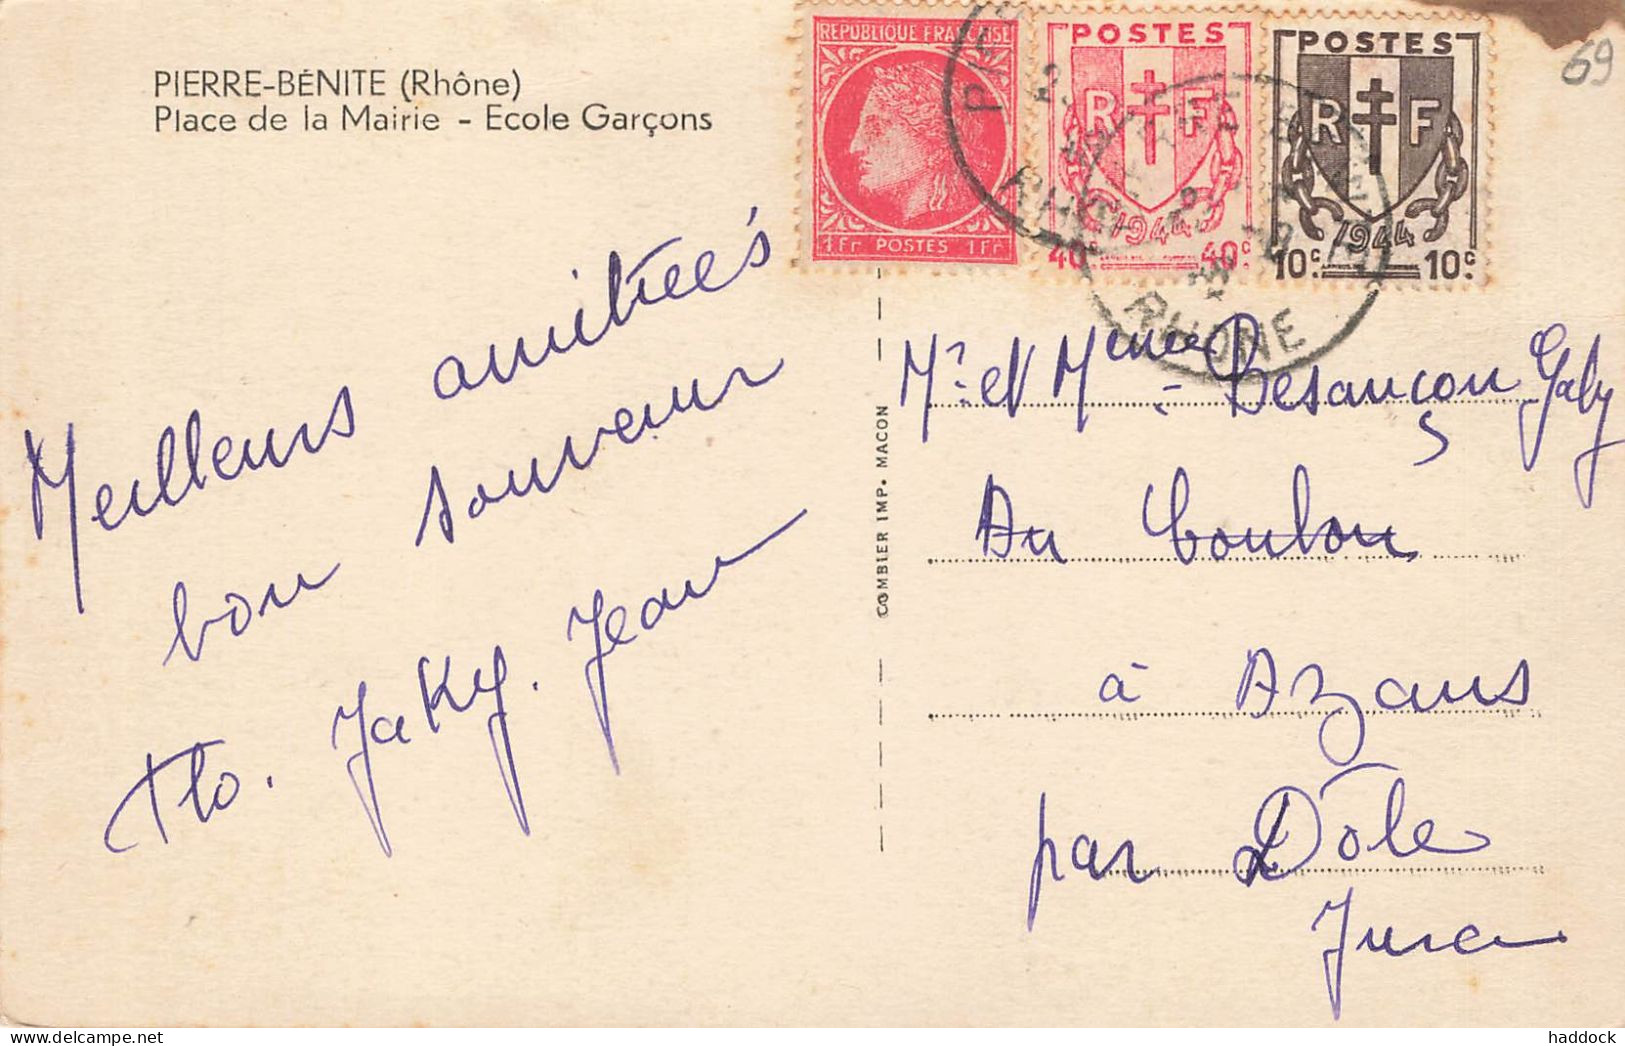 PIERRE-BÉNITE (Rhône)
Place de la Mairie - Ecole Garçons
REPUBLIQUE FRANÇAISE
1Fr POSTES 1Fr
POSTES
RF
1944
40c 40c
POSTES
RF
1944
10c 10c
RHONE
69
Meilleurs amitiées
bon souvenir
Flo. Jaky. Jean
COMBIER IMP. MACON
Mr. et Mme. Besançon Gaby
Au
à Azans
par Dôle
Jura
haddock